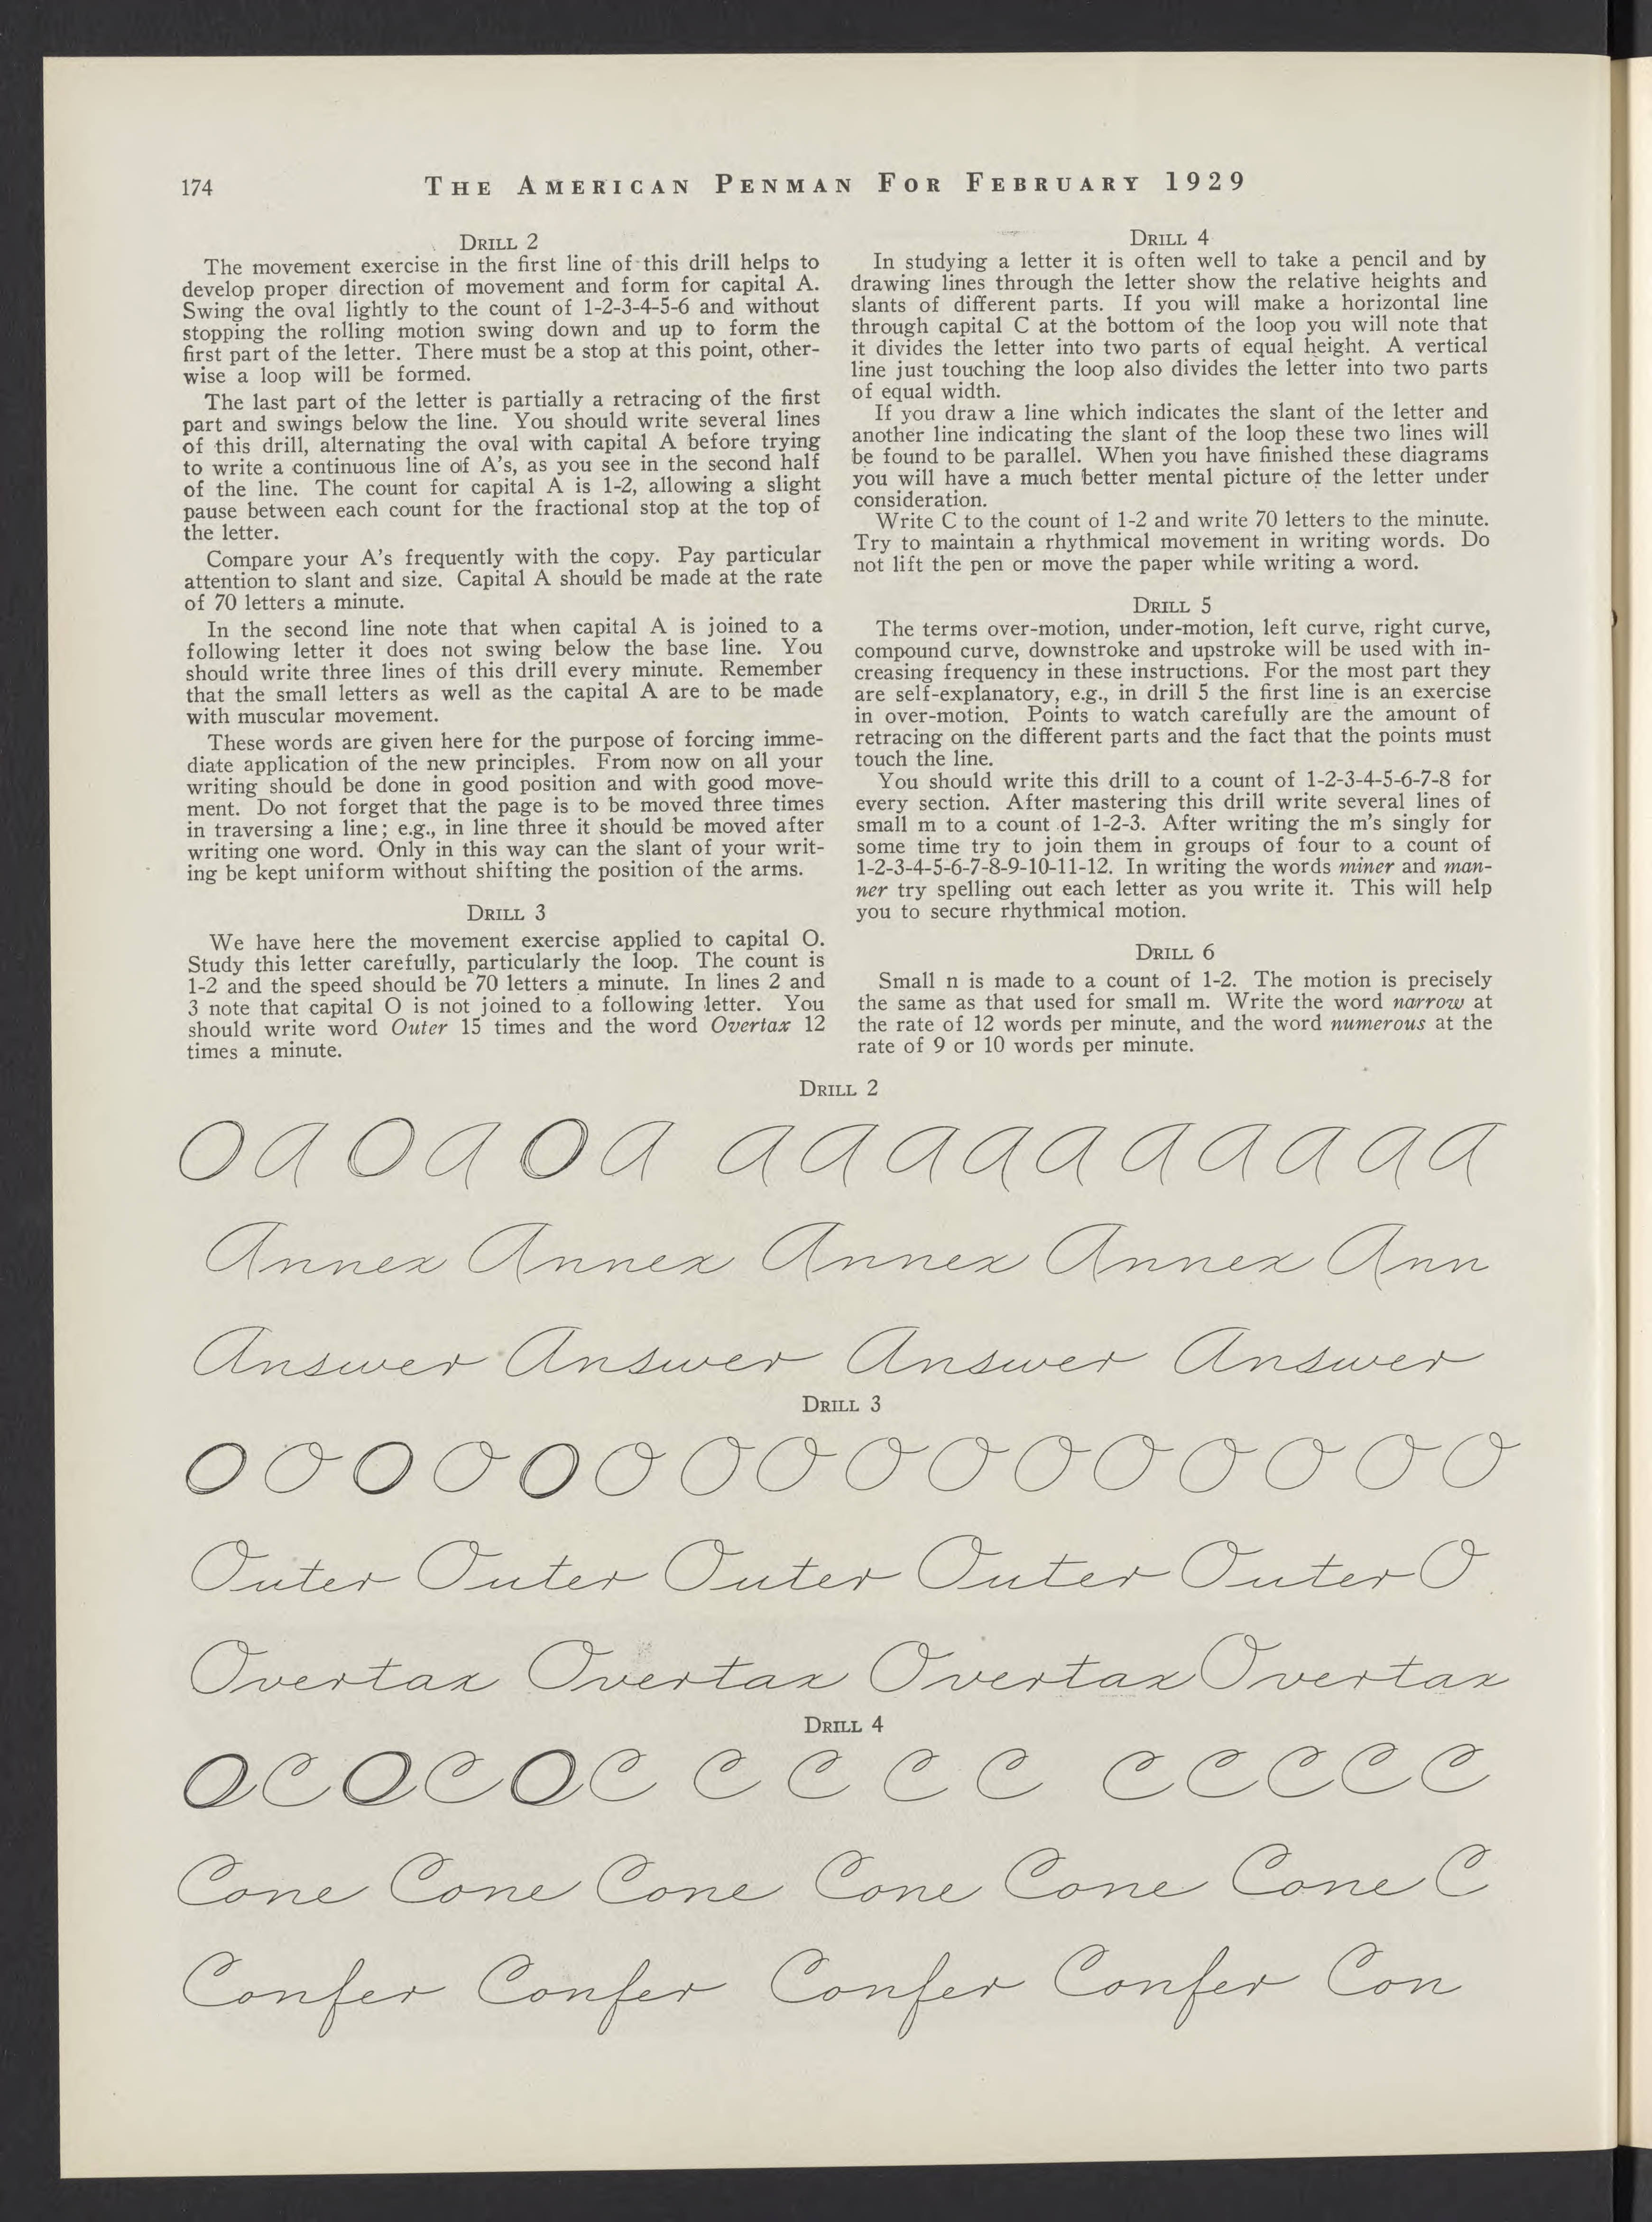 174
THE AMERICAN PENMAN FOR FEBRUARY 1929
DRILL 2
The movement exercise in the first line of this drill helps to
develop proper direction of movement and form for capital A.
Swing the oval lightly to the count of 1-2-3-4-5-6 and without
stopping the rolling motion swing down and up to form the
first part of the letter. There must be a stop at this point, other-
wise a loop will be formed.
The last part of the letter is partially a retracing of the first
part and swings below the line. You should write several lines
of this drill, alternating the oval with capital A before trying
to write a continuous line of A's, as you see in the second half
of the line. The count for capital A is 1-2, allowing a slight
pause between each count for the fractional stop at the top of
the letter.
Compare your A's frequently with the copy. Pay particular
attention to slant and size. Capital A should be made at the rate
of 70 letters a minute.
In the second line note that when capital A is joined to a
following letter it does not swing below the base line. You
should write three lines of this drill every minute. Remember
that the small letters as well as the capital A are to be made
with muscular movement.
These words are given here for the purpose of forcing imme-
diate application of the new principles. From now on all your
writing should be done in good position and with good move-
ment. Do not forget that the page is to be moved three times
in traversing a line; e.g., in line three it should be moved after
writing one word. Only in this way can the slant of your writ-
ing be kept uniform without shifting the position of the arms.
DRILL 3
We have here the movement exercise applied to capital O.
Study this letter carefully, particularly the loop. The count is
1-2 and the speed should be 70 letters a minute. In lines 2 and
3 note that capital O is not joined to a following letter. You
should write word Outer 15 times and the word Overtax 12
times a minute.
DRILL 4
In studying a letter it is often well to take a pencil and by
drawing lines through the letter show the relative heights and
slants of different parts. If you will make a horizontal line
through capital C at the bottom of the loop you will note that
it divides the letter into two parts of equal height. A vertical
line just touching the loop also divides the letter into two parts
of equal width.
If you draw a line which indicates the slant of the letter and
another line indicating the slant of the loop these two lines will
be found to be parallel. When you have finished these diagrams
you will have a much better mental picture of the letter under
consideration.
Write C to the count of 1-2 and write 70 letters to the minute.
Try to maintain a rhythmical movement in writing words. Do
not lift the pen or move the paper while writing a word.
DRILL 5
The terms over-motion, under-motion, left curve, right curve,
compound curve, downstroke and upstroke will be used with in-
creasing frequency in these instructions. For the most part they
are self-explanatory, e.g., in drill 5 the first line is an exercise
in over-motion. Points to watch carefully are the amount of
retracing on the different parts and the fact that the points must
touch the line.
You should write this drill to a count of 1-2-3-4-5-6-7-8 for
every section. After mastering this drill write several lines of
small m to a count of 1-2-3. After writing the m's singly for
some time try to join them in groups of four to a count of
1-2-3-4-5-6-7-8-9-10-11-12. In writing the words miner and man-
ner try spelling out each letter as you write it. This will help
you to secure rhythmical motion.
DRILL 6
Small n is made to a count of 1-2. The motion is precisely
the same as that used for small m. Write the word narrow at
the rate of 12 words per minute, and the word numerous at the
rate of 9 or 10 words per minute.
DRILL 2
O A O A O A A A A A A A A A A A
Annex Annex Annex Annex Ann
Answer Answer Answer Answer
DRILL 3
O O O O O O O O O O O O O O O O
Outer Outer Outer Outer Outer O
Overtax Overtax Overtax Overtax
DRILL 4
O C O C O C C C C C C C C C C
Cone Cone Cone Cone Cone Cone C
Confer Confer Confer Confer Con